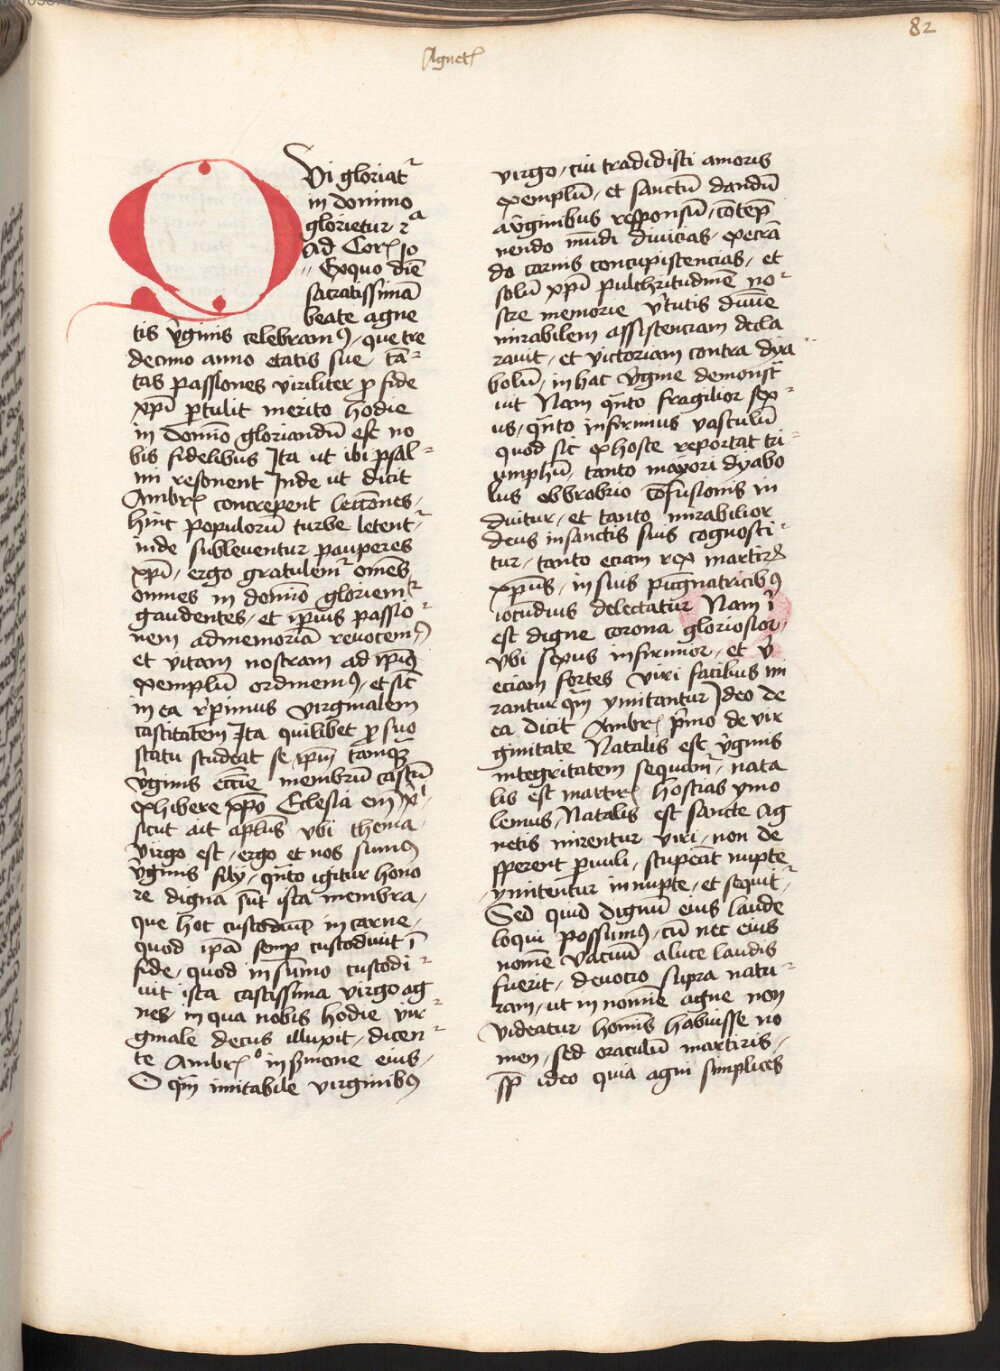 82
Agnet
Qui gloriat᷑
in domino
glorietur 2ᵃ
ad Cor 10
Exquo diē
sacratissimā
beate agne
tis v̄ginis celebramꝰ, que tre
decimo anno etatis sue, tā
tas passiones viriliter ꝓ fide
xp̄i ꝑtulit merito hodie
in domīo gloriandū est no
bis fidelibus Ita ut ibi psal
mi resonent Inde ut dicit
Ambr concrepent lectōnes,
hinc populorū turbe letent᷑
inde subleventur pauperes
xp̄i, ergo gratulem᷑ om̄es
omnes in domīo gloriem᷑
gaudentes, et ip̄ius passio
nem admemoriā revocemꝰ
et vitam nostram ad ip̄iꝰ
exemplū ordinemꝰ, et sic̄
in ea r̄perimus virginalem
castitatem Ita quilibet ꝓ suo
statu studeat se ip̄m tamqꝫ
v̄ginis ecc̄ie membrū castū
exhibere xp̄o Eclesia em̄ xp̄i
sicut ait apl̄us vbi thema
virgo est, ergo et nos sumꝰ
v̄ginis filÿ, qn̄to igitur hono
re digna sūt ista membra,
que hoc custodiūt in carne,
quod ip̄a semꝑ custodivit ī
fide, quod insūmo custodi
vit ista castissima virgo ag
nes, in qua nobis hodie vir
ginale decus illuxit, dicen
te Ambrᵒ in s̄mone eius,
O qm̄ imitabile virginibꝰ
virgo, cui tradidisti amoris
exemplū, et sanctū dandū
av̄ginibus responsū, cōtēp
nendo mūdi divicias, execrā
do carnis concupiscencias, et
solū xp̄i pulchritudinē no
stre memorie v̄tutis divīe
mirabilem assistenciam decla
ravit, et victoriam contra dya
bolū, in hac v̄gine demonst
vit Nam qn̄to fragilior sex
us, qn̄to infirmius vasculū
quod sic ex hoste reportat tri
umphū, tanto mayori dyabo
lus obbrobrio cōfusionis in
duitur, et tanto mirabilior
deus insanctis suis cognosci
tur, tanto eciam rex martirꝝ
xp̄us, insuis pugnatricibꝰ
iocundius delectatur Nam ī
est digne corona gloriosior,
vbi sexus infirmior, et v̄
eciam fortes viri facilius mi
rantur qm̄ ymitantur Ideo de
ea dicit Ambr p̄mo de vir
ginitate Natalis est v̄ginis
integritatem sequam᷑, nata
lis est martir hostias ymo
lemus, Natalis est sancte Ag
netis mirentur viri, non de
sperent ꝑvuli, stupeāt nupte
ymitentur innupte, et sequit᷑
Sed quid dignū eius laude
loqui possumꝰ, cū nec eius
nomē vacuū aluce laudis
fuerit, devocio supra natu
ram, ut in nomīe agne non
videatur homīs habuisse no
men, sed oraculū martiris,
Sp̄ ideo quia agni simplices